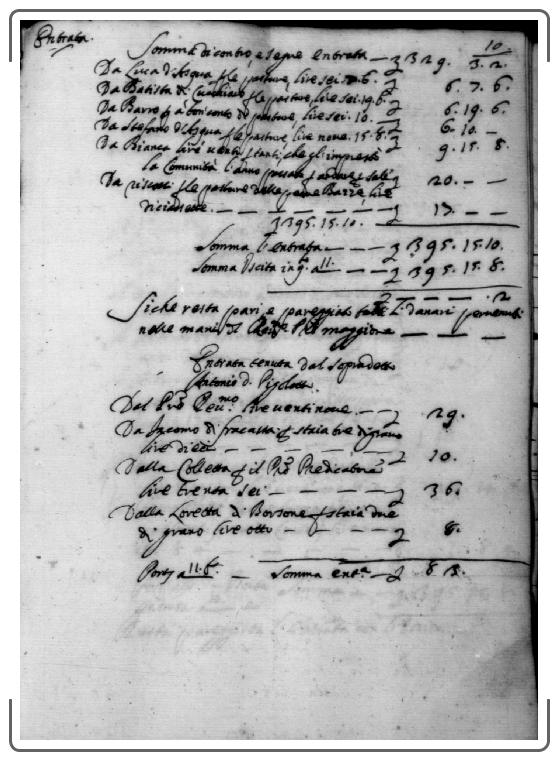 Entrata
10
Somma di contro, e segue entrata — £ 329. 3. 2.
Da Luca d'Acqua p le pasture, lire sei. 7. 6. £ 6. 7. 6.
Da Batista di p le pasture, lire sei. 19. 6. £ 6. 19. 6.
Da Barro pasture, lire sei. 10. £ 6. 10. —
Da Stefano d'Acqua p le pasture, lire nove. 15. 8. £ 9. 15. 8.
Da Bianca lire venti p tanti, che gli imprestò
la Comunità l'anno passato £ 20. — —
Da p le pasture delle lire
diciasette. — — — — — — £ 17. — —
£ 395. 15. 10.
Somma l'entrata — — — £ 395. 15. 10.
Somma Uscita in q.° a 11. — — £ 395. 15. 8.
£ — — — . 2
Siche resta pari, e pareggiato danari pervenuti
nelle mani maggiore — — —
Entrata tenuta dal sopradetto
Antonio d.
Dal lire venti nove. — £ 29.
Da Giacomo di fracassa p staia tre di grano
lire dieci — — — — — — £ 10.
Dalla Colletta p il Predicatore
lire trenta sei — — — — — £ 36.
Dalla Loretta di Borsone p staia due
di grano lire otto — — — — £ 8.
Port a 11. — Somma ent.a — £ 83.